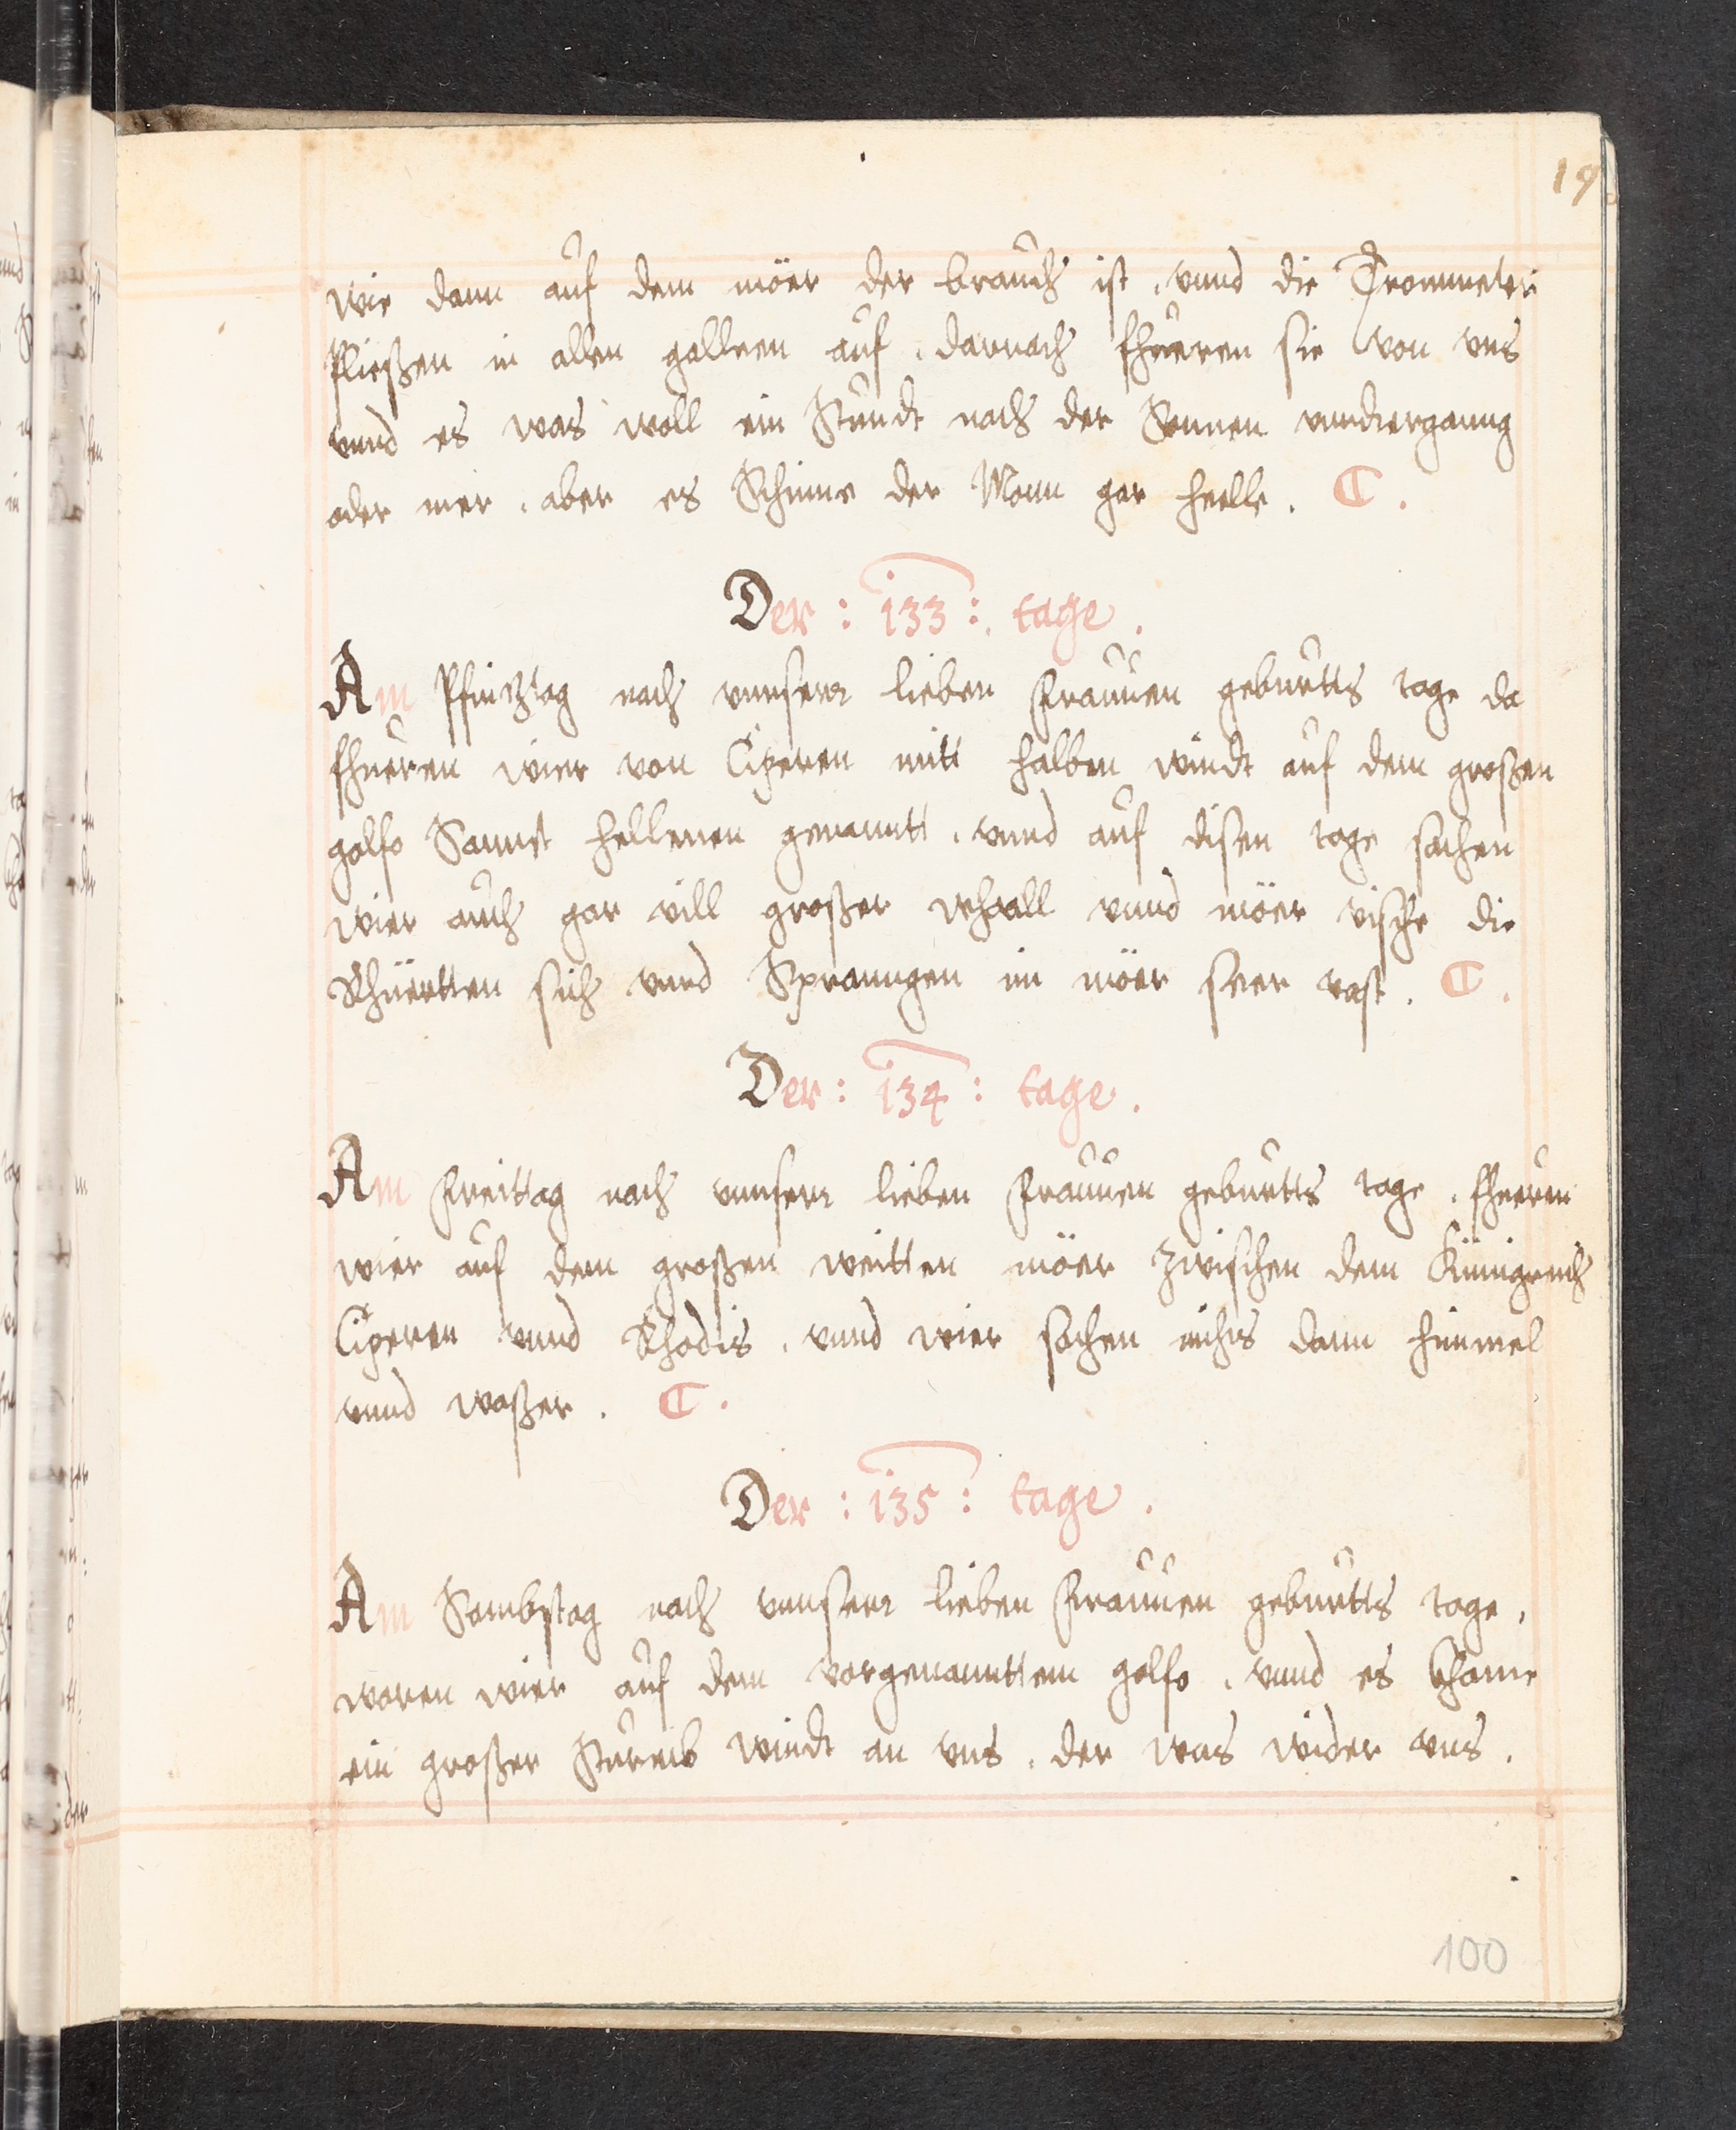 wie dann auf dem möer der brauch ist . vnnd die Trommeter
Pließen in allen galleen auf . darnach fhueren sie von vns
vnnd es was woll ein Stundt nach der Sonnen vnndterganng
oder mer . aber es Schinne der Monn gar helle . C .
Der : 133 : tage .
Am Pfinztag nach vnnserr lieben Frauuen geburtts tage da
fhueren wier von Ciperen mitt halben windt auf dem großen
golfo Sannct hellenen genanntt . vnnd auf disen tage sachen
wier auch gar vill großer whaall vnnd möer vische die
Rhüertten sich vnnd Sprunngen im möer seer vast . C .
Der : 134 : tage .
Am Freittag nach vnnserr lieben Frauuen geburtts tage . fhueren
wier auf dem großen weitten möer zwischen dem Künigreich
Ciperen vnnd Rhodis . vnnd wier sachen nichts dann himmel
vnnd waßer . C .
Der : 135 : tage .
Am Sambstag nach vnnserr lieben Frauuen geburtts tage .
waren wier auf dem vorgenannttem golfo . vnnd es khame
ein großer Stureib windt an vns . der was wider vns .
100